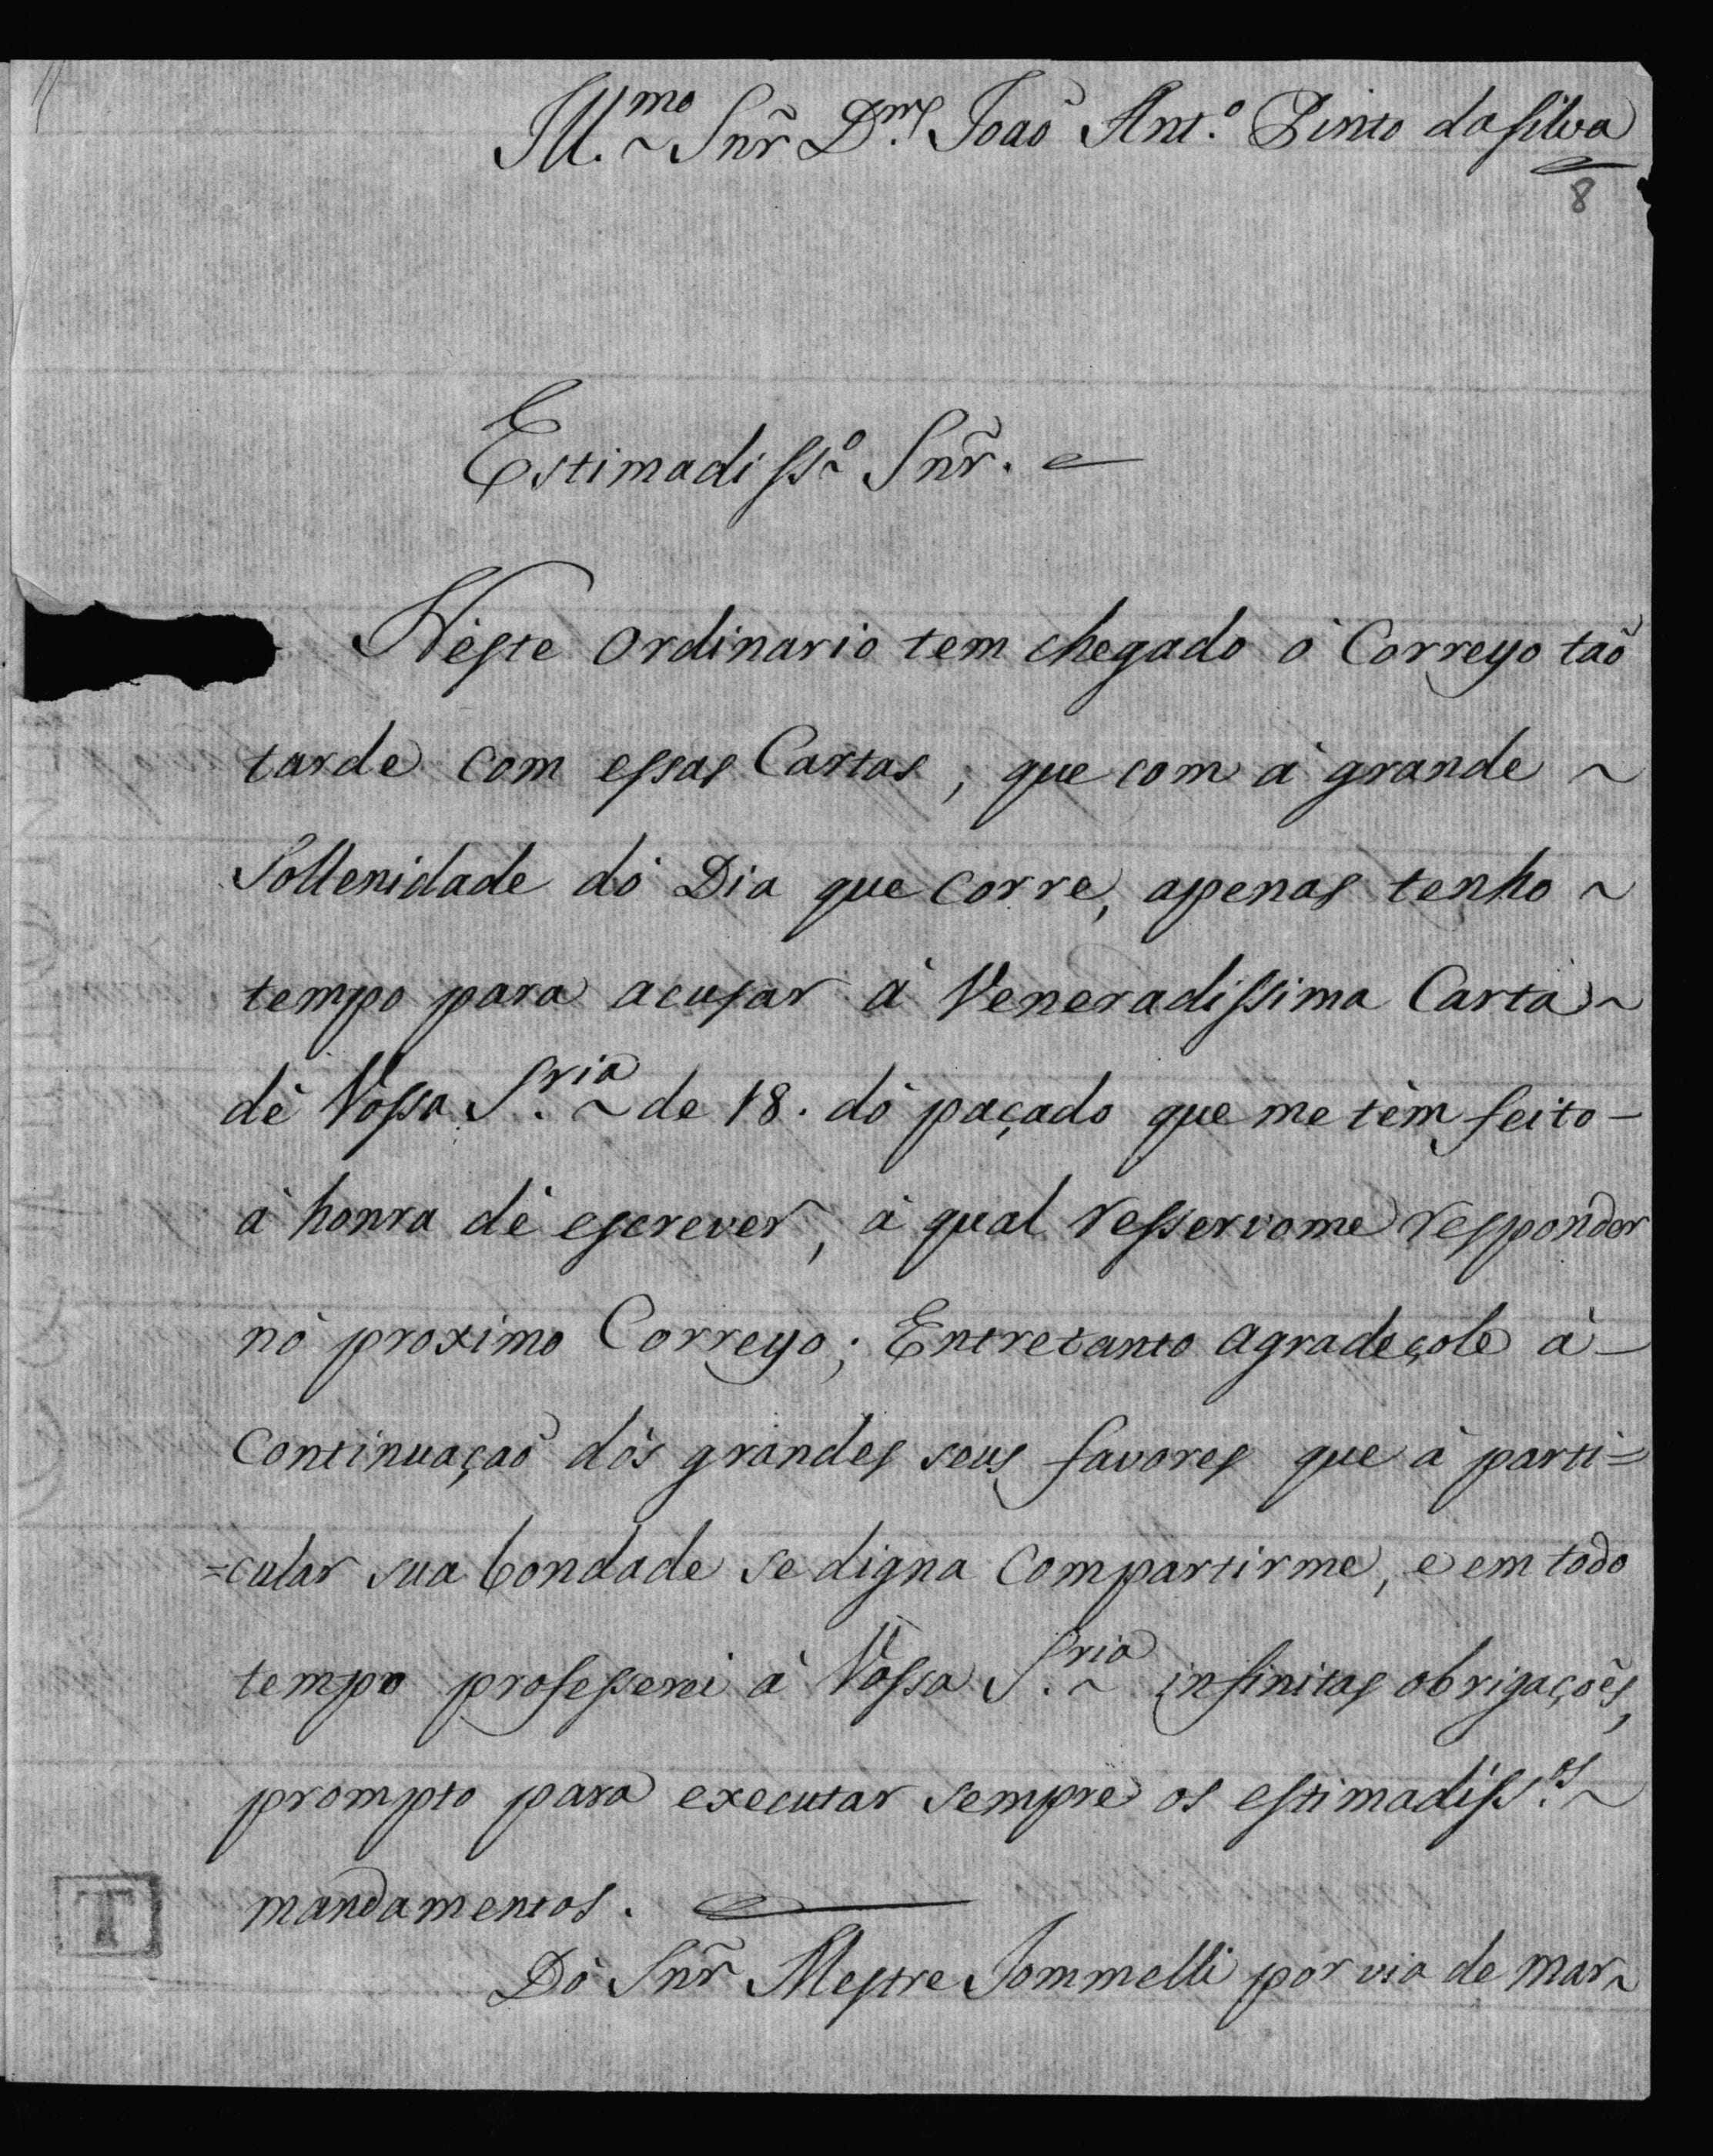 Ill.mo Snr̃ D.or João Ant.o Pinto da Silva
8
Estimadiss.o Snr̃.
Nèste Ordinario tem chegado ò Correyo tão
tarde com essas Cartas, que com à grande ~
Sollenidade dò Dia que corre, apenas tenho ~
tempo para acusar à Veneradissima Carta ~
dè Vòssa S.ria ~ de 18. dò paçado que me tèm feito -
à honra dè escrever, à qual resservome responder
nò proximo Correyo; Entretanto agradeçole à -
Continuação dòs grandes seus favores que à parti=
=cular sua bondade se digna compartirme, e em todo
tempo professerei à Vòssa S.ria ~ infinitas obrigaçoès,
prompto para executar sempre os estimadiss.os ~
mandamentos.
Dò Snr̃ Mestre Jommelli por via de mar ~
T